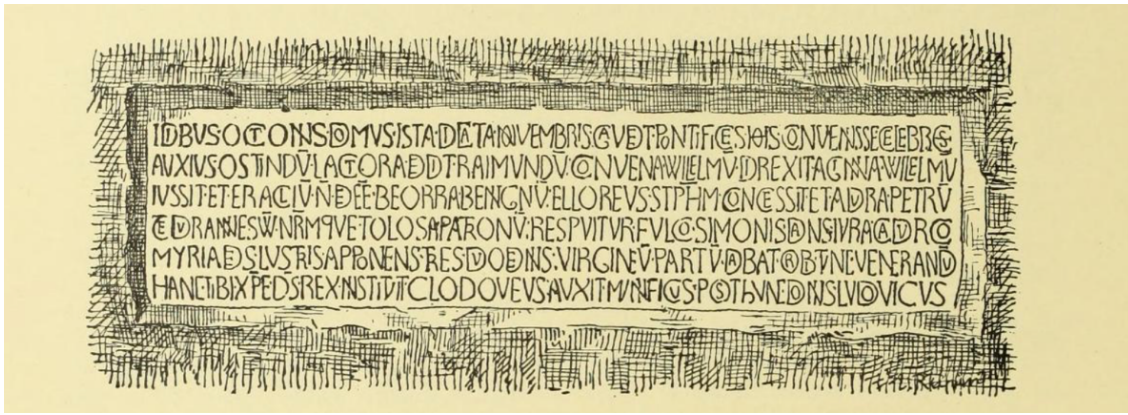 IDIBVS·OCTONIS DOMVS·ISTA·DICATA NOVEMBRIS·GAVDET·PONTIFICES·HOS·CONVENISSE CELEBRES·
AVXIVS OSTINDV̄·LACTORA·DEDIT·RAIMVNDV̄·CONVENA·WILELMV̄·DIREXIT·AGINNA·WILELMV̄
IVSSIT·ET·ERACLIV̄·N̄·DEE͞E·BEORRA·BENIGNV̄·ELLOREVS·STPH̄M·CONCESSIT·ET·ADVRA·PETRV̄
TE DVRANNE SVV̄·NR̄MQVE·TOLOSA·PATRONV̄·RESPVITVR·FVLCO·SIMONIS·DANS·IVRA·CADVRCO
MYRIADES·LVSTRIS APPONENS·TRES·DVODENIS·VIRGINEV̄·PARTV̄·DABAT·ORBI·TVNC VENERANDV̄
HANC·TIBI XP̄E DS̄·REX·INSTITVIT·CLODOVEVS·AVXIT MVNIFICVS·POST·hVNC·DONIS·LVDOVICVS